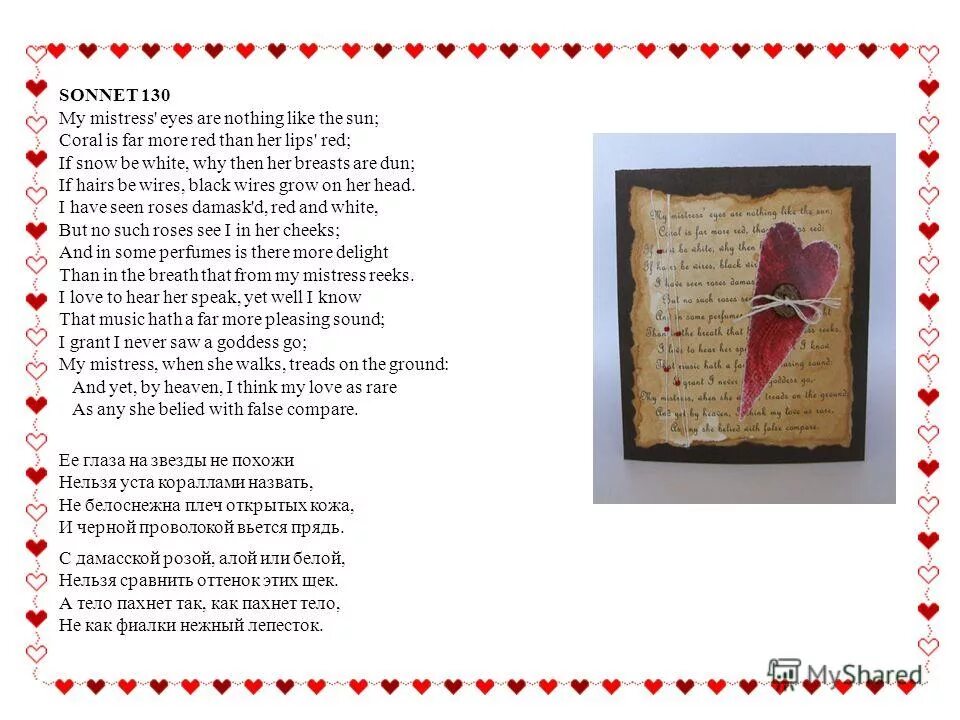 SONNET 130
My mistress' eyes are nothing like the sun;
Coral is far more red than her lips' red;
If snow be white, why then her breasts are dun;
If hairs be wires, black wires grow on her head.
I have seen roses damask'd, red and white,
But no such roses see I in her cheeks;
And in some perfumes is there more delight
Than in the breath that from my mistress reeks.
I love to hear her speak, yet well I know
That music hath a far more pleasing sound;
I grant I never saw a goddess go;
My mistress, when she walks, treads on the ground:
And yet, by heaven, I think my love as rare
As any she belied with false compare.
Ее глаза на звезды не похожи
Нельзя уста кораллами назвать,
Не белоснежна плеч открытых кожа,
И черной проволокой вьется прядь.
С дамасской розой, алой или белой,
Нельзя сравнить оттенок этих щек.
А тело пахнет так, как пахнет тело,
Не как фиалки нежный лепесток.
My mistress' eyes are nothing like the sun;
Coral is far more red, red;
be white, why then
hairs be wires, black
I have seen roses
But no such roses
And in some
the breath that reeks,
to hear her I know
music hath a sound:
grant I never goddess go,
My mistress, when she treads on the ground;
And yet by heaven, think my love as rare,
As any she belied with false compare.
MyShared